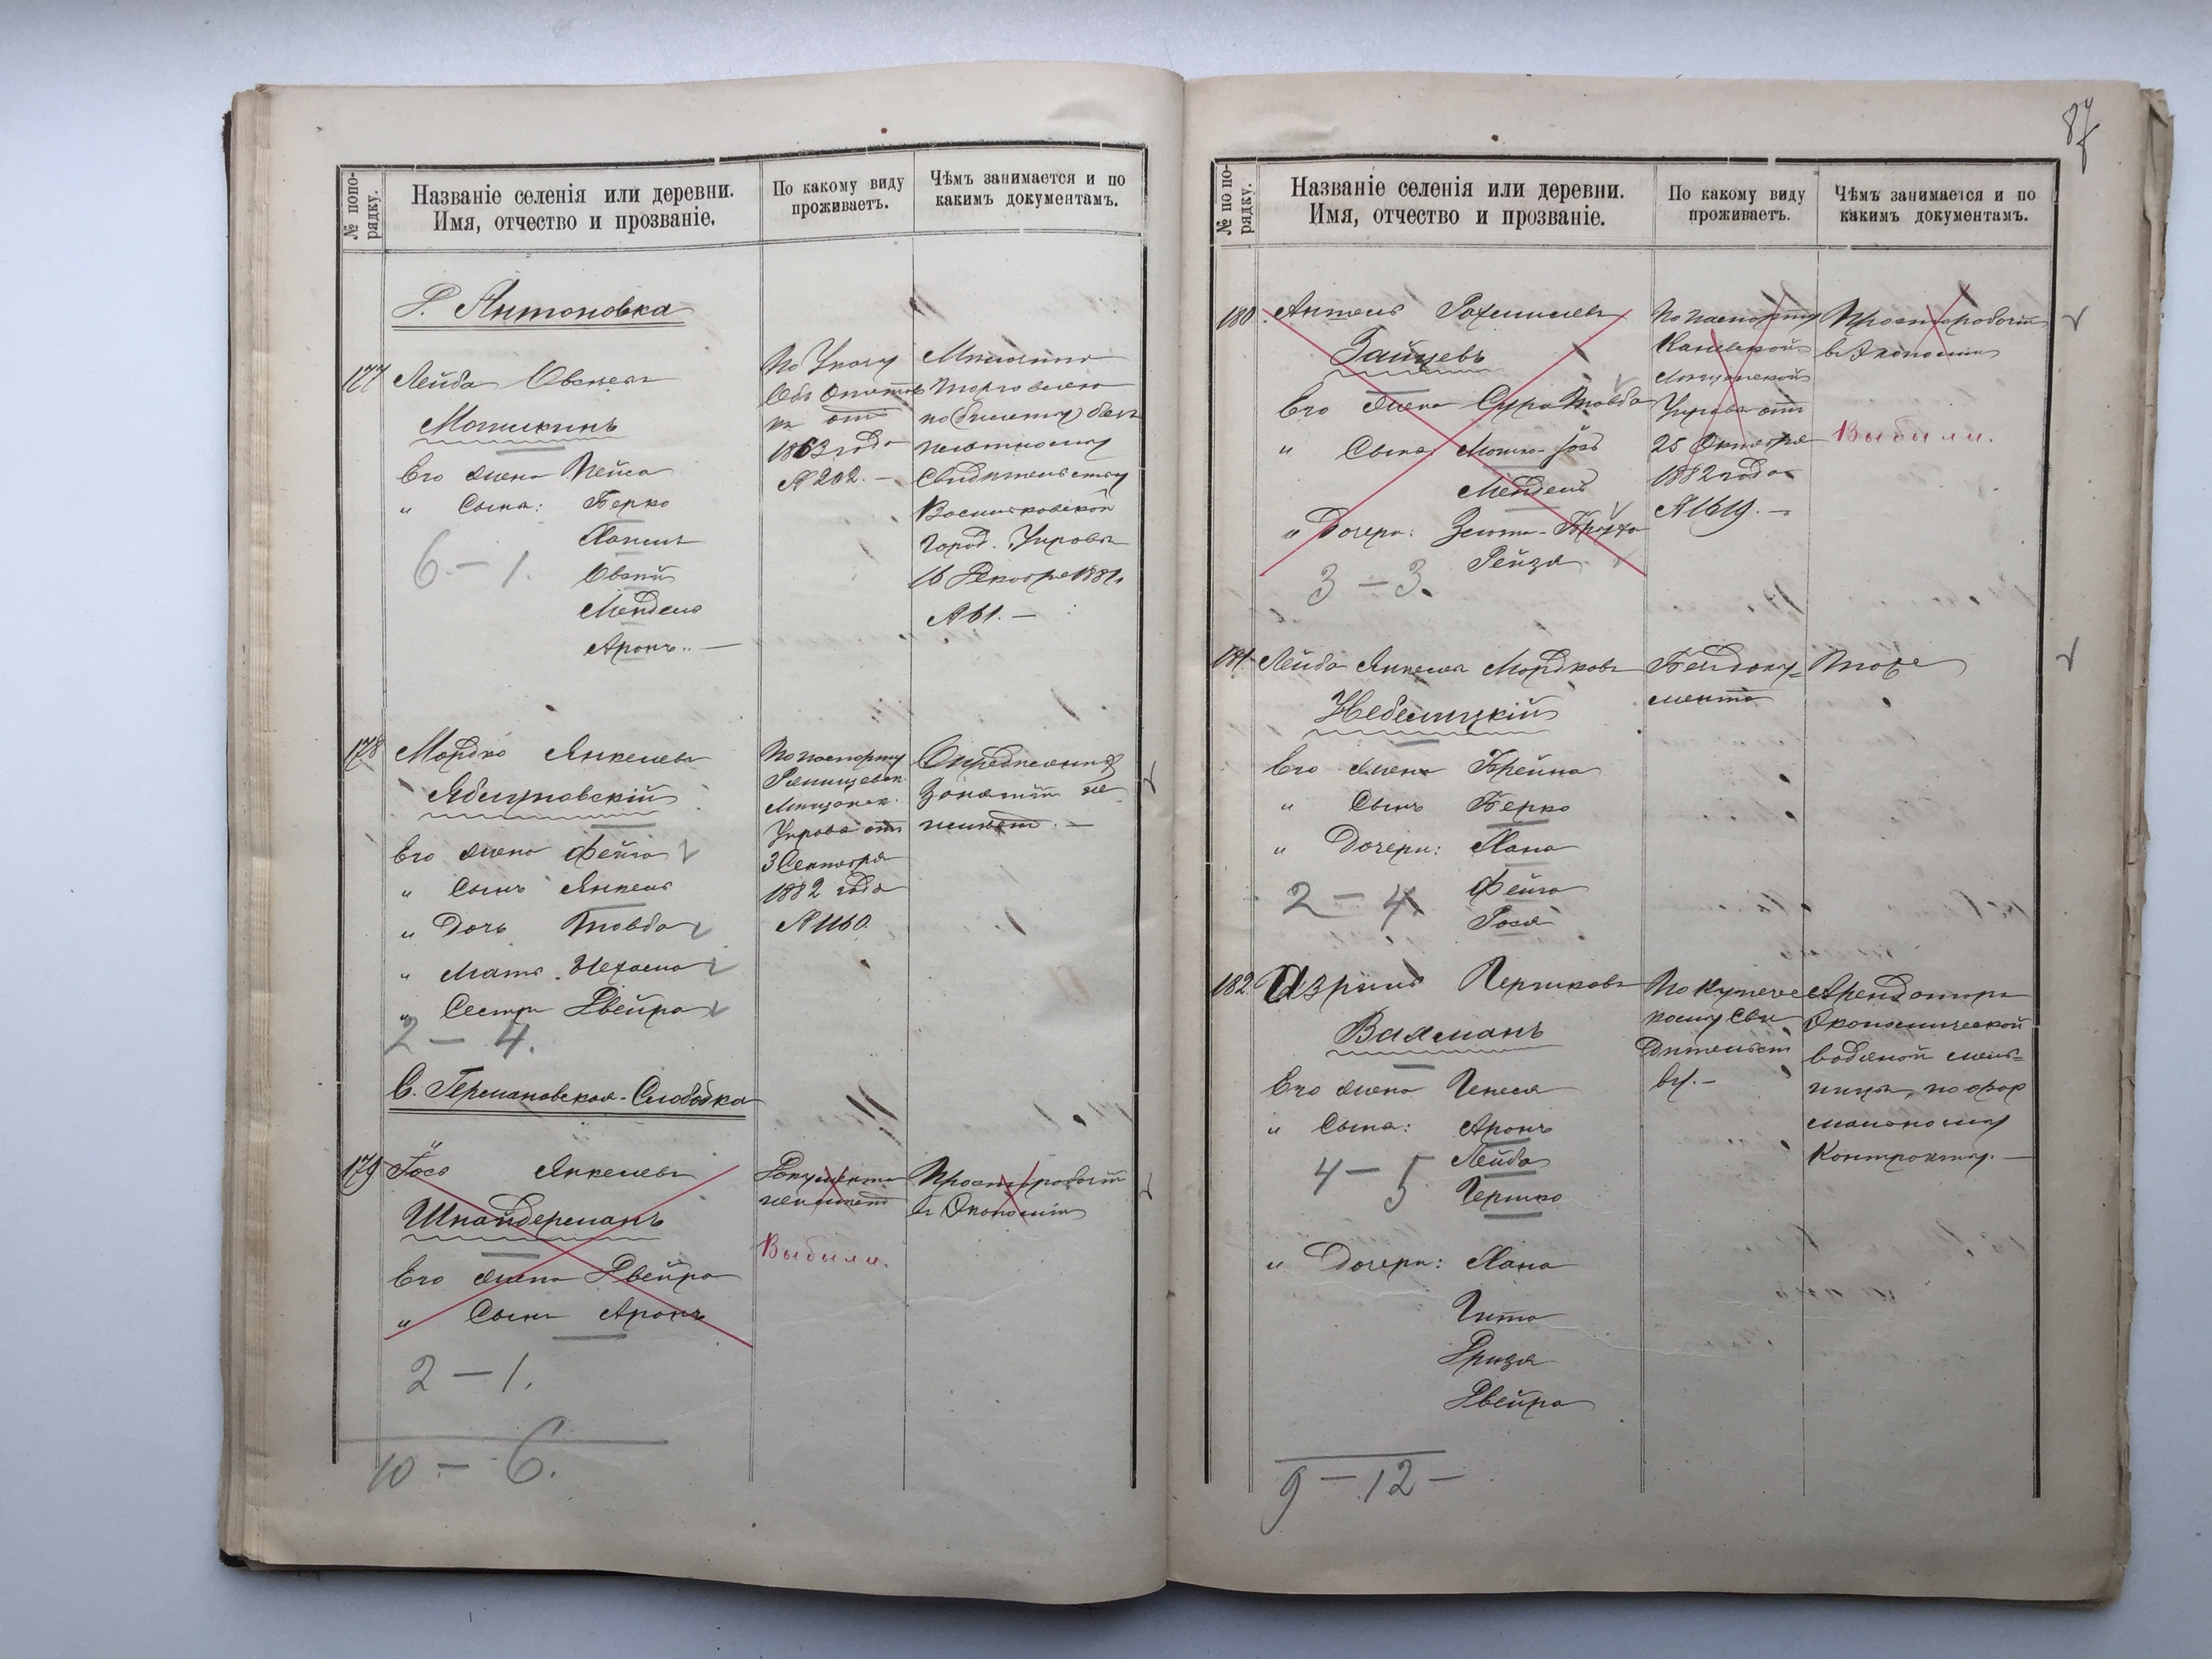 87
№ по по-
рядку.
Названіе селенія или деревни.
Имя, отчество и прозваніе.
По какому виду
проживаетъ.
Чѣмъ занимается и по
какимъ документамъ.
Д. Антоновка
177 Лейба Овсѣевъ
Мошкинъ
Его жена Пейса
" Сына: Берко
Хаимъ
Овсѣй
Мендель
Аронъ. —
6 – 1.
По Указу
Объ
отъ
1863 года
№ 202. —
Мелочною
торговлею
по (билету) безъ
платному
Свидѣтельству
Васильковской
Город. Управы
16 Декабря 1881
№ 61. —
178 Мордко Янкелевъ
Яблуновскій
Его жена Фейга
" Сынъ Янкель
" Дочь Товба
" Мать Нехама
" Сестра Двейра
2 – 4.
По паспорту
Мѣщанск.
Управы отъ
3 Сентября
1882 года
№ 1160.
Опредѣленныхъ
занятій не
имѣетъ. —
С. Германовская-Слободка
179 Іось Янкелевъ
Шнайдерманъ
Его жена Двейра
" Сынъ Аронъ
2 – 1.
10 – 6.
Документа
неимѣетъ
Выбыли.
Простъ рабочій
въ Экономіи
№ по по-
рядку.
Названіе селенія или деревни.
Имя, отчество и прозваніе.
По какому виду
проживаетъ.
Чѣмъ занимается и по
какимъ документамъ.
180 Антель Рахмилевъ
Зайцевъ
Его жена Сура Товба
" Сына: Мошко-Іось
Мендель
" Дочери: Злота-Брухо
Рейзя
3 – 3.
По паспорту
Каневской
Мѣщанской
Управы отъ
25 Октября
1882 года
№ 1619. —
Простъ рабочій
въ Экономіи
Выбыли.
181 Лейба Янкелевъ Мордковъ
Небелицкій
Его жена Брейна
" Сынъ Берко
" Дочери: Хана
Фейга
Рося
2 – 4
Бездоку=
мента
Тоже
182 Азріиль Гершковъ
Ваxманъ
Его жена Генеся
" Сына: Аронъ
Лейба
Гершко
4 – 5
" Дочери: Хана
Гитя
Двейра
9 – 12 –
По Купече
скому Сви
дѣтельст
ву. –
Арендаторъ
Экономической
водяной мель=
ницы, по фор
мальному
Контракту. —